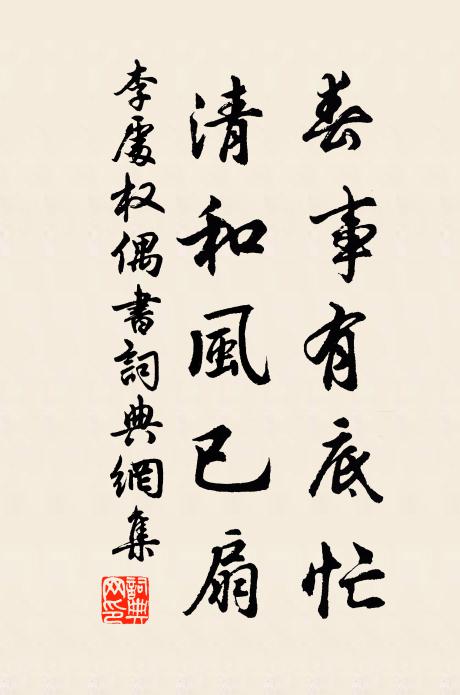 春事有底忙
清和風已扇
李處权偶書詞典網集
詞典網印